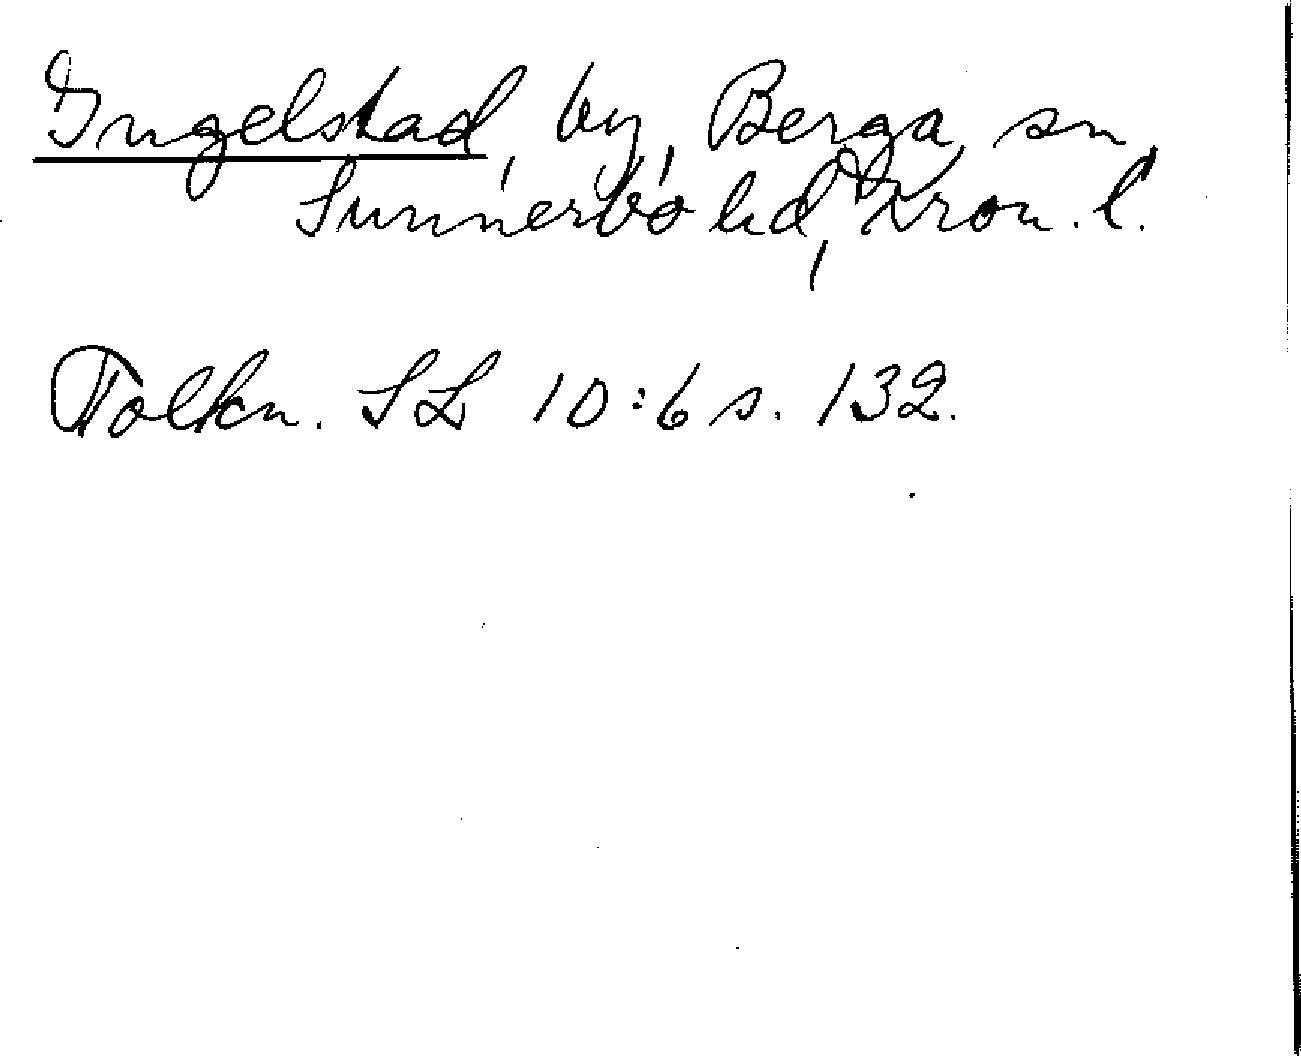 Ingelstad, by, Berga sn,
Sunnerbo hd, Kron. l.
Tolkn. SL 10:6 s. 132.